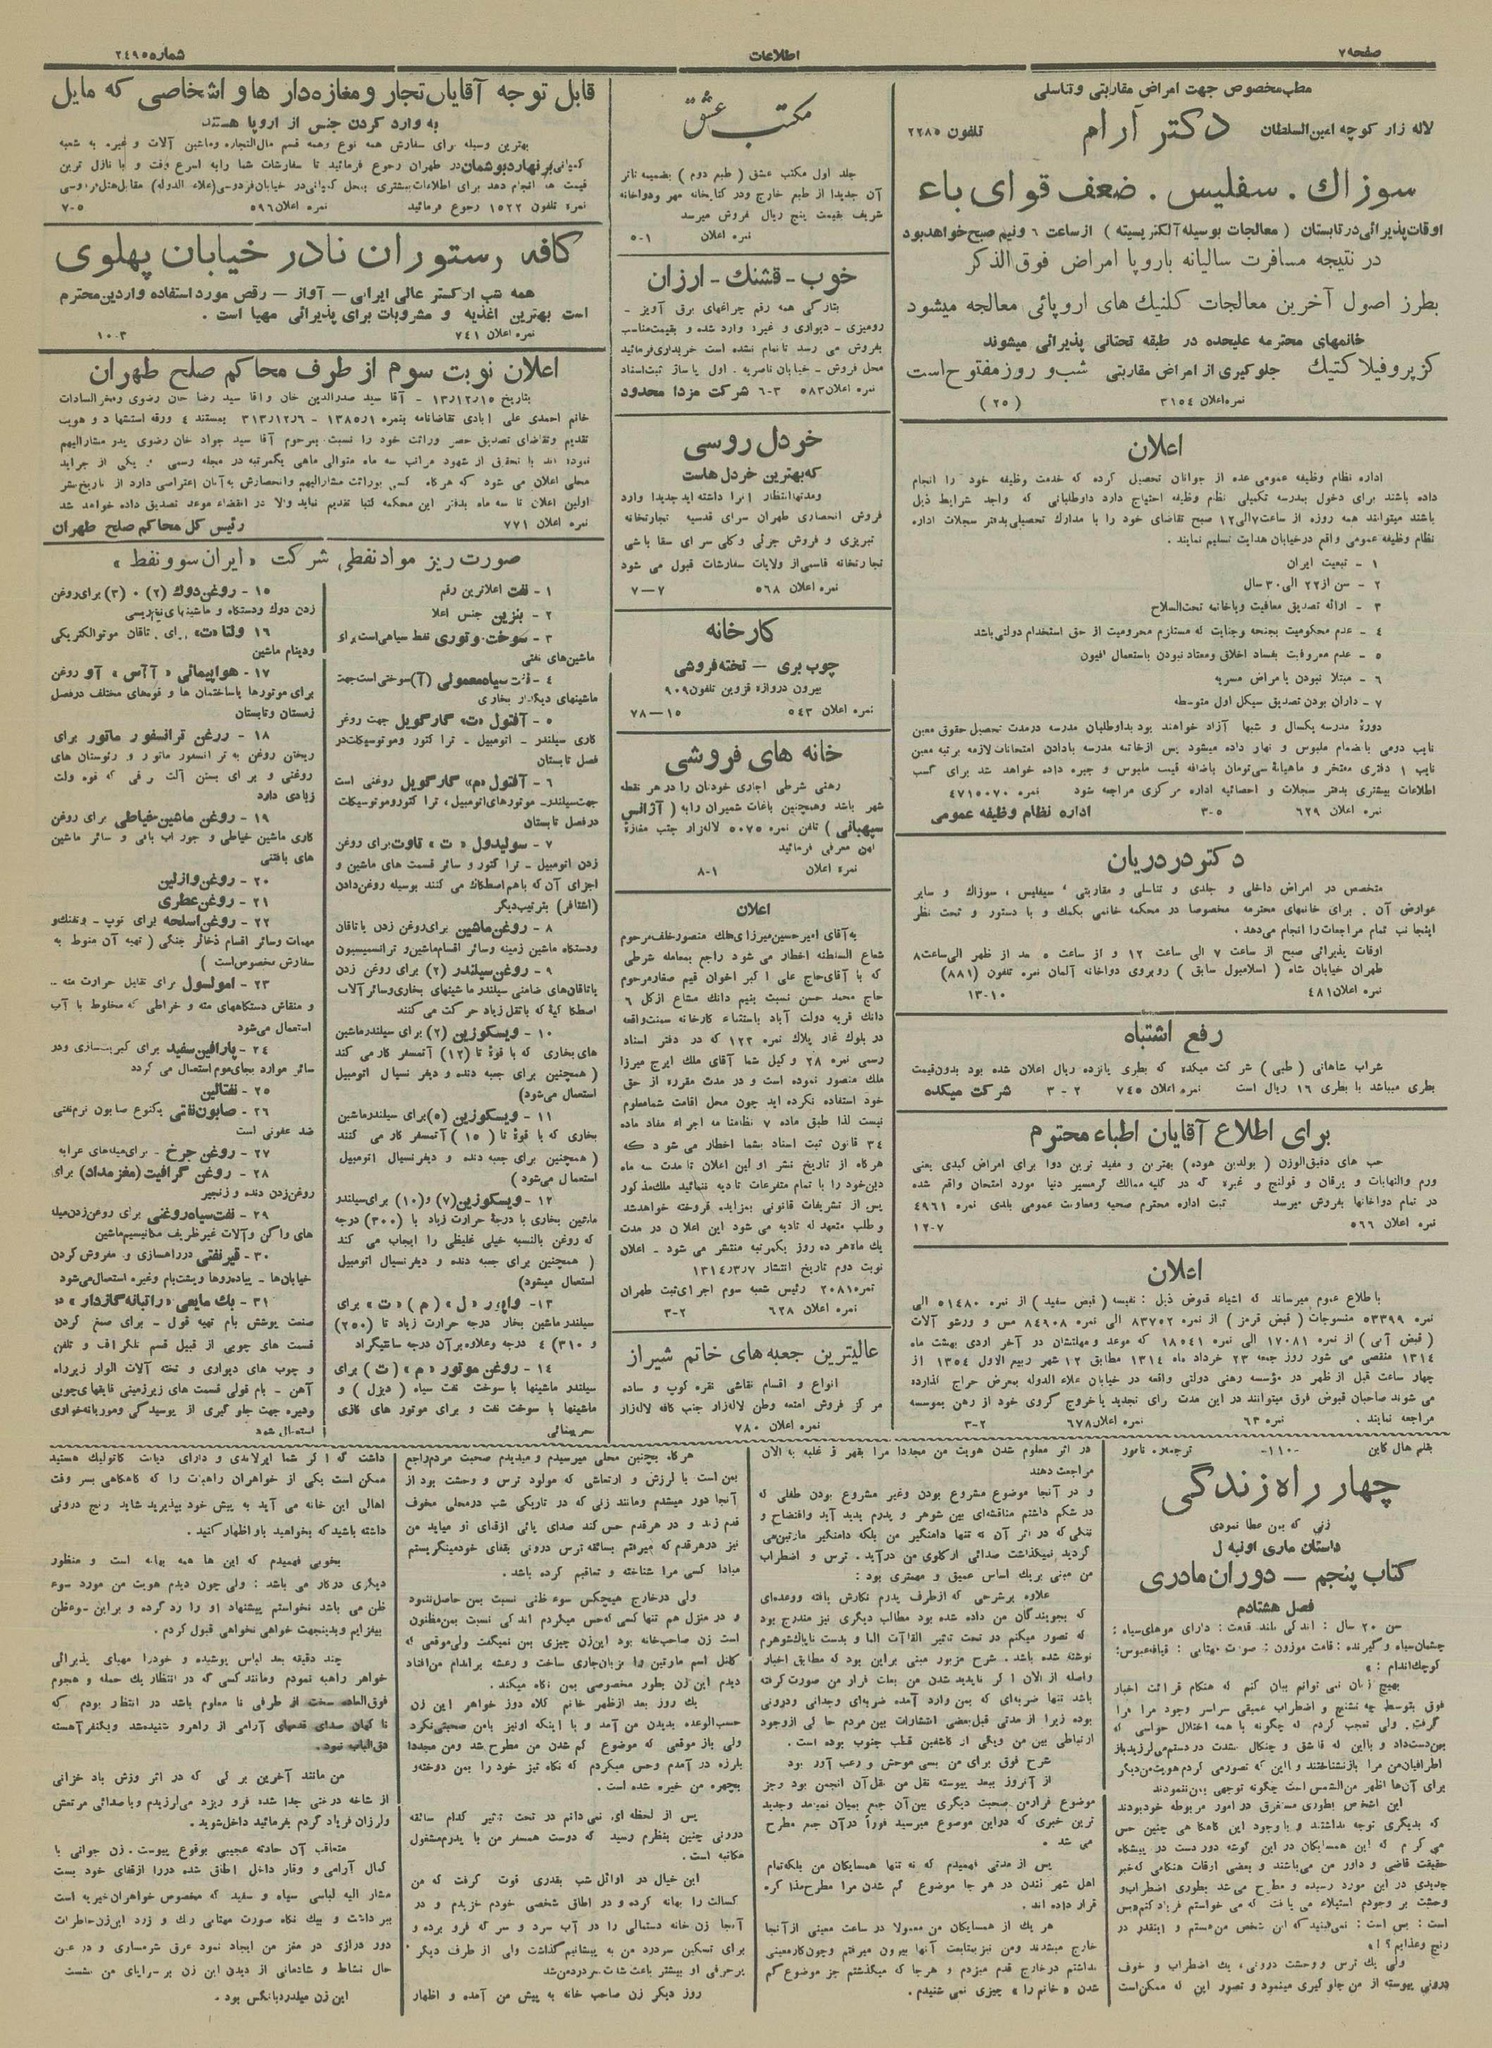 صفحه ۷
اطلاعات
شماره ۲۴۹۵
مطب مخصوص جهت امراض مقاربتی و تناسلی
لاله زار کوچه امین‌السلطان دکتر آرام تلفون ۲۲۸۵
سوزاك . سفلیس . ضعف قوای باء
اوقات پذیرائی در تابستان ( معالجات بوسیله آلکتریسیته ) از ساعت ۶ ونیم صبح خواهد بود
در نتیجه مسافرت سالیانه باروپا امراض فوق الذکر
بطرز اصول آخرین معالجات کلنیك های اروپائی معالجه میشود
خانمهای محترمه علیحده در طبقه تحتانی پذیرائی میشوند
کزپروفیلاکتیك جلوگیری از امراض مقاربتی شب و روز مفتوح است
نمره اعلان ۳۱۵۴ (۲۵)
اعلان
اداره نظام وظیفه عمومی عده از جوانان تحصیل کرده که خدمت وظیفه خود را انجام
داده باشند برای دخول بمدرسه تکمیلی نظام وظیفه احتیاج دارد داوطلبانی که واجد شرایط ذیل
باشند میتوانند همه روزه از ساعت ۷ الی ۱۲ صبح تقاضای خود را با مدارك تحصیلی بدفتر سجلات اداره
نظام وظیفه عمومی واقع در خیابان هدایت تسلیم نمایند .
۱ - تبعیت ایران
۲ - سن از ۲۲ الی ۳۰ سال
۳ - ارائه تصدیق معافیت و یا خاتمه تحت السلاح
۴ - عدم محکومیت بجنحه و جنایت که مستلزم محرومیت از حق استخدام دولتی باشد
۵ - عدم معروفیت بفساد اخلاق و معتاد نبودن باستعمال افیون
۶ - مبتلا نبودن بامراض مسریه
۷ - داران بودن تصدیق سیکل اول متوسطه
دورهٔ مدرسه یکسال و شبها آزاد خواهند بود بداوطلبان مدرسه در مدت تحصیل حقوق معین
نایب دومی باضمام ملبوس و نهار داده میشود پس از خاتمه مدرسه با دادن امتحانات لازمه برتبه معین
نایب ۱ دفتری مفتخر و ماهیانه سی تومان باضافه قیمت ملبوس و جیره داده خواهد شد برای کسب
اطلاعات بیشتری بدفتر سجلات و احصائیه اداره مرکزی مراجعه شود نمره ۴۷۱۵۰۷۰
نمره اعلان ۶۲۹ ۳-۵ اداره نظام وظیفه عمومی
دکتر دردریان
متخصص در امراض داخلی و جلدی و تناسلی و مقاربتی ، سیفلیس ، سوزاك و سایر
عوارض آن . برای خانمهای محترمه مخصوصا در محکمه خانمی بکمك و با دستور و تحت نظر
اینجانب تمام مراجعات را انجام می‌دهد .
اوقات پذیرائی صبح از ساعت ۷ الی ساعت ۱۲ و از ساعت ۵ بعد از ظهر الی ساعت ۸
طهران خیابان شاه ( اسلامبول سابق ) روبروی دواخانه آلمان نمره تلفون (۸۸۱)
نمره اعلان ۴۸۱ ۱۳-۱۰
رفع اشتباه
شراب شاهانی ( طبی ) شرکت میکده که بطری پانزده ریال اعلان شده بود بدون قیمت
بطری میباشد با بطری ۱۶ ریال است نمره اعلان ۷۴۵ ۳-۲ شرکت میکده
برای اطلاع آقایان اطباء محترم
حب های دقیق الوزن ( بولدین هوده) بهترین و مفید ترین دوا برای امراض کبدی یعنی
ورم والتهابات و یرقان و قولنج و غیره که در کلیه ممالک گرمسیر دنیا مورد امتحان واقع شده
در تمام دواخانها بفروش میرسد ثبت اداره محترم صحیه ومعاونت عمومی بلدی نمره ۴۹۶۱
نمره اعلان ۵۶۶ ۱۲-۷
اعلان
باطلاع عموم میرساند که اشیاء قبوض ذیل : نفیسه ( قبض سفید ) از نمره ۵۱۴۸۰ الی
نمره ۵۳۳۹۹ منسوجات ( قبض قرمز ) از نمره ۸۳۷۵۲ الی نمره ۸۴۹۰۸ مس و ورشو آلات
( قبض آبی ) از نمره ۱۷۰۸۱ الی نمره ۱۸۵۴۱ که موعد و مهلتشان در آخر اردی بهشت ماه
۱۳۱۴ منقضی می شود روز جمعه ۲۳ خرداد ماه ۱۳۱۴ مطابق ۱۲ شهر ربیع الاول ۱۳۵۴ از
چهار ساعت قبل از ظهر در مؤسسه رهنی دولتی واقعه در خیابان علاء الدوله بمعرض حراج گذارده
می شوند صاحبان قبوض فوق میتوانند در این مدت رای تجدید یا خروج گروی خود از رهن بموسسه
مراجعه نمایند . نمره ۶۳ نمره اعلان ۶۷۸ ۳-۲
مکتب عشق
جلد اول مکتب عشق ( طبع دوم ) بضمیمه تاتر
آن جدیدا از طبع خارج ودر کتابخانه مهر ودواخانه
شریف بقیمت پنج ریال فروش میرسد
نمره اعلان ۵-۱
خوب - قشنك - ارزان
بتازگی همه رقم چراغهای برق آویز -
رومیزی - دیواری و غیره وارد شده و بقیمت مناسب
بفروش می رسد تا تمام نشده است خریداری فرمائید
محل فروش - خیابان ناصریه . اول پاساژ ثبت اسناد
نمره اعلان ۵۸۳ ۶-۳ شرکت مزدا محدود
خردل روسی
که بهترین خردل هاست
ومدتها انتظار آنرا داشته اید جدیدا وارد
فروش انحصاری طهران سرای قدسیه تجارتخانه
تبریزی و فروش جزئی وکلی سرای سقا باشی
تجارتخانه قاسمی از ولایات سفارشات قبول می شود
نمره اعلان ۵۶۸ ۷-۷
کارخانه
چوب بری - تخته فروشی
بیرون دروازه قزوین تلفون ۹۰۹
نمره اعلان ۵۴۳ ۷۸-۱۵
خانه های فروشی
رهنی شرطی اجاری خودتان را در هر نقطه
شهر باشد وهمچنین باغات شمیران رابه ( آژانس
سپهبانی ) تلفن نمره ۵۰۷۵ لاله‌زار جنب مغازه
معرفی فرمائید
نمره اعلان ۸-۱
اعلان
به آقای امیر حسین میرزای ملك منصور خلف مرحوم
شعاع السلطنه اخطار می شود راجع بمعامله شرطی
که با آقای حاج علی اکبر اخوان قیم صغار مرحوم
حاج محمد حسن نسبت بنیم دانك مشاع از کل ۶
دانك قریه دولت آباد باستثناء کارخانه سمنت واقعه
در بلوك غار پلاك نمره ۱۲۲ که در دفتر اسناد
رسمی نمره ۲۸ وکیل شما آقای ملك ایرج میرزا
ملك منصور نموده است و در مدت مقرره از حق
خود استفاده نکرده اید چون محل اقامت شما معلوم
نیست لذا طبق ماده ۷ نظامنامه اجراء مفاد ماده
۳۴ قانون ثبت اسناد بشما اخطار می شود که
هرگاه از تاریخ نشر اولین اعلان تا مدت سه ماه
دین خود را با تمام متفرعات تادیه ننمائید ملك مذکور
پس از تشریفات قانونی بمزایده فروخته خواهد شد
و طلب متعهد له تادیه می شود این اعلان در مدت
یك ماه هر ده روز یکمرتبه منتشر می شود - اعلان
نوبت دوم تاریخ انتشار ۱۳۱۴/۳/۷
نمره ۲۰۸۱ رئیس شعبه سوم اجرای ثبت طهران
نمره اعلان ۶۲۸ ۳-۲
عالیترین جعبه های خاتم شیراز
انواع و اقسام نقاشی نقره کوب و ساده
مرکز فروش امتعه وطن لاله‌زار جنب کافه لاله‌زار
نمره اعلان ۷۸۰
قابل توجه آقایان تجار و مغازه‌دار ها و اشخاصی که مایل
به وارد کردن جنس از اروپا هستند
بهترین وسیله برای سفارش همه نوع وهمه قسم مال‌التجاره وماشین آلات و غیره به شعبه
کمپانی برنهارد بوشمان در طهران رجوع فرمائید تا سفارشات شما رابه اسرع وقت و با نازل ترین
قیمت ها انجام دهد برای اطلاعات بیشتری بمحل کمپانی در خیابان فردوسی (علاء الدوله) مقابل هتل فردوسی
نمره تلفون ۱۵۲۲ رجوع فرمائید نمره اعلان ۵۹۶ ۷-۵
کافه رستوران نادر خیابان پهلوی
همه شب ارکستر عالی ایرانی - آواز - رقص مورد استفاده واردین محترم
است بهترین اغذیه و مشروبات برای پذیرائی مهیا است .
نمره اعلان ۷۴۱ ۱۰-۳
اعلان نوبت سوم از طرف محاکم صلح طهران
بتاریخ ۱۳/۱۲/۱۵ - آقا سید صدرالدین خان واقا سید رضا خان رضوی وفخر السادات
خانم احمدی علی آبادی تقاضانامه بنمره ۱۳۸۵/۱ - ۳۱۳/۱۲/۶ بمستند ۴ ورقه استشهاد و هویت
تقدیم وتقاضای تصدیق حصر وراثت خود را نسبت بمرحوم آقا سید جواد خان رضوی پدر مشارالیهم
نموده اند با تحقیق از شهود مراتب سه ماه متوالی ماهی یکمرتبه در مجله رسمی و یکی از جراید
محلی اعلان می شود که هرگاه کسی بوراثت مشارالیهم وانحصارش به آنان اعتراضی دارد از تاریخ نشر
اولین اعلان تا سه ماه بدفتر این محکمه کتبا تقدیم نماید والا در انقضاء موعد تصدیق داده خواهد شد
نمره اعلان ۷۷۱ رئیس کل محاکم صلح طهران
صورت ریز مواد نفطی شرکت « ایران سوونفط »
۱ - نفت اعلاترین رقم
۲ - بنزین جنس اعلا
۳ - سوخت وتوری نفط سیاهی است برای
ماشین‌های نفتی
۴ - نفت سیاه معمولی (آ) سوختی است جهت
ماشینهای دیگر بخاری
۵ - آفتول «ت» گارگویل جهت روغن
کاری سیلندر - اتومبیل - تراکتور وموتوسیکلت در
فصل تابستان
۶ - آفتول «م» گارگویل روغنی است
جهت سیلندر - موتورهای اتومبیل ، تراکتور وموتوسیکلت
در فصل تابستان
۷ - سولیدول « ت » تاوت برای روغن
زدن اتومبیل - تراکتور و سائر قسمت های ماشین و
اجزای آن که باهم اصطکاك می کنند بوسیله روغن‌دادن
(اشتافر) بترتیب دیگر
۸ - روغن ماشین برای روغن زدن یاتاقان
ودستگاه ماشین زمینه وسائر اقسام ماشین و ترانسمیسیون
۹ - روغن سیلندر (۲) برای روغن زدن
یاتاقان‌های ضامنی سیلندر ماشینهای بخاری وسائر آلات
اصطکاکیه که باثقل زیاد حرکت می کنند
۱۰ - ویسکوزین (۲) برای سیلندر ماشین
های بخاری که با قوهٔ تا (۱۲) آتمسفر کار می کند
( همچنین برای جعبه دنده و دیفرنسیال اتومبیل
استعمال می‌شود)
۱۱ - ویسکوزین (۵) برای سیلندر ماشین
بخاری که با قوهٔ تا ( ۱۵ ) آتمسفر کار می کنند
( همچنین برای جعبه دنده و دیفرنسیال اتومبیل
استعمال می شود )
۱۲ - ویسکوزین (۷) و (۱۰) برای سیلندر
ماشین بخاری با درجهٔ حرارت زیاد با (۳۰۰) درجه
که روغن بالنسبه خیلی غلیظی را ایجاب می کند
( همچنین برای جعبه دنده و دیفرنسیال اتومبیل
استعمال میشود)
۱۳ - « ل » ( م ) « ت » برای
سیلندر ماشین بخار درجه حرارت زیاد تا (۲۵۰)
و ۳۱۰) درجه وعلاوه بر آن درجه سانتیگراد
۱۴ - روغن موتور « م » ( ت ) برای
سیلندر ماشینها با سوخت نفت سیاه ( دیزل ) و
ماشینها با سوخت نفت و برای موتور های گازی
۱۵ - روغن دوك (۲) ۰ (۳) برای روغن
زدن دوك ودستگاه و ماشینهای نخ‌ریسی
۱۶ ولتا «ت» برای یاتاقان موتور الکتریکی
ودینام ماشین
۱۷ - هواپیمائی « آ‌آس » آو روغن
برای موتورها باساختمان ها و قوه‌های مختلف در فصل
زمستان وتابستان
۱۸ - روغن ترانسفورماتور برای
ریختن روغن به ترانسفور ماتور و رئوستان های
روغنی و برای بستن آلت برقی که قوه ولت
زیادی دارد
۱۹ - روغن ماشین خیاطی برای روغن
کاری ماشین خیاطی و جوراب بافی و سائر ماشین
های بافتنی
۲۰ - روغن وازلین
۲۱ - روغن عطری
۲۲ - روغن اسلحه برای توپ - وتفنك و
مهمات وسائر اقسام ذخائر جنگی ( تهیه آن منوط به
سفارش مخصوص است )
۲۳ - امولسول برای تقلیل حرارت مته ..
و منقاش دستگاههای مته و خراطی که مخلوط با آب
استعمال می‌شود
۲۴ - پارافین سفید برای کبریت‌سازی ودر
سائر موارد بجای موم استعمال می گردد
۲۵ - نفتالین
۲۶ - صابون نفتی یکنوع صابون نرم نفتی
ضد عفونی است
۲۷ - روغن چرخ - برای میله‌های عرابه
۲۸ - روغن گرافیت (مغز مداد) برای
روغن‌زدن دنده و زنجیر
۲۹ - نفت سیاه روغنی برای روغن‌زدن میله
های واگن وآلات غیر ظریف مکانیسم ماشین
۳۰ - قیر نفتی در راهسازی و مفروش کردن
خیابان‌ها - پیاده‌روها وپشت‌بام وغیره استعمال می‌شود
۳۱ - بك مایعی «راتیانه گازدار » در
صنعت پوشش بام تهیه قول - برای صمغ کردن
قسمت های چوبی از قبیل قسم تلگراف و تلفن
و چوب های دیواری و تخته آلات الوار زیر راه
آهن - بام قولی قسمت های زیرزمینی قایقهای چوبی
وغیره جهت جلوگیری از پوسیدگی وموریانه خواری
استعمال شود
بقلم هال کاین -۱۱۰- ترجمه‌ی نامور
چهار راه زندگی
زنی که بمن عطا نمودی
داستان ماری اونیه ل
کتاب پنجم - دوران مادری
فصل هشتادم
سن ۲۰ سال : اندکی بلند قامت : دارای موهای سیاه :
چشمان سیاه وگیرنده : قامت موزون : صورت مهتابی : قیافه عبوس:
کوچك اندام : »
بهیچ زبان نمی توانم بیان کنم که هنگام قرائت اخبار
فوق بتوسط چه تشنج و اضطراب عمیقی سراسر وجود مرا فرا
گرفت . ولی تعجب کردم که چگونه با همه اختلال حواسی که
بمن دست‌داد و بااین که قاشق و چنگال بشدت در دستم می لرزید باز
اطرافیان من مرا بازنشناختند و بااین که تصورمی کردم هویت من دیگر
برای آن‌ها اظهر من الشمس است چگونه توجهی بمن ننمودند
این اشخاص بطوری مستغرق در امور مربوطه خود بودند
که بدیگری توجه نداشتند و باوجود این گاهگاهی چنین حس
می کردم که این همسایگان در این گوشه دور دست در پیشگاه
حقیقت قاضی و داور من می‌باشند و بعضی اوقات هنگامی که خبر
جدیدی در این مورد رسیده و مطرح می شد بطوری اضطراب و
وحشت بر وجودم استیلاء می یافت که می خواستم فریاد کنم «بس
است : بس است : نمی‌بینید که این شخص من هستم و اینقدر در
رنج وعذابم ؟ ! »
ولی یك ترس ووحشت درونی، یك اضطراب و خوف
درونی پیوسته از من جلوگیری مینمود و تصور این که ممکن است
در اثر معلوم شدن هویت من مجددا مرا بقهر و غلبه به الان
مراجعت دهند
و در آنجا موضوع مشروع بودن وغیر مشروع بودن طفلی که
در شکم داشتم مناقشه‌ای بین شوهر و پدرم پدید آید وافتضاح و
ننگی که در اثر آن نه تنها دامنگیر من بلکه دامنگیر مارتین می
گردید نمیگذاشت صدائی ازگلوی من درآید. ترس و اضطراب
من مبنی بریك اساس عمیق و مهمتری بود :
علاوه برشرحی که ازطرف پدرم نگارش یافته ووعده‌ای
که بجویندگان من داده شده بود مطالب دیگری نیز مندرج بود
که تصور میکنم در تحت تاثیر القاآت الما و بدست ناپاك شوهرم
نوشته شده باشد . شرح مزبور مبنی براین بود که مطابق اخبار
واصله از الان اگر ناپدید شدن من بعلت فرار من صورت گرفته
باشد تنها ضربه‌ای که بمن وارد آمده ضربه‌ای وجدانی ودرونی
بوده زیرا از مدتی قبل بعضی انتشارات بین مردم حاکی ازوجود
ارتباطی بین من ویکی از کاشفین قطب جنوب بوده است .
شرح فوق برای من بسی موحش و رعب آور بود
از آنروز ببعد پیوسته نقل من نقل آن انجمن بود وجز
موضوع فرارمن صحبت دیگری بین آن جمع بمیان نمیآمد وجدید
ترین خبری که دراین موضوع میرسید فوراً درآن جمع مطرح
می شد .
پس از مدتی فهمیدم که نه تنها همسایگان من بلکه تمام
اهل شهر لندن در هر جا موضوع گم شدن مرا مطرح مذاکره
قرار داده اند .
هر یك از همسایگان من معمولا در ساعت معینی ازآنجا
خارج میشدند ومن نیز بمتابعت آنها بیرون میرفتم وچون کارمعینی
نداشتم درخارج قدم میزدم و هرجا که میگذشتم جز موضوع گم
شدن « خانم را » چیزی نمی شنیدم .
هرگاه بچنین محلی میرسیدم و میدیدم صحبت مردم راجع
بمن است با لرزش و ارتعاشی که مولود ترس و وحشت بود از
آنجا دور میشدم ومانند زنی که در تاریکی شب درمحلی مخوف
قدم زند و در هرقدم حس کند صدای پائی ازقفای او میاید من
نیز درهرقدم که میرفتم بسائقه ترس درونی بقفای خودمینگریستم
مبادا کسی مرا شناخته و تعاقبم کرده باشد .
ولی درخارج هیچکس سوء ظنی نسبت بمن حاصل ننمود
و در منزل هم تنها کسی که حس میکردم اندکی نسبت بمن مظنون
است زن صاحبخانه بود این زن چیزی بمن نمیگفت ولی موقعی که
کامل اسم مارتین را بزبان جاری ساخت و رعشه براندام من افتاد
دیدم این زن بطور مخصوصی بمن نگاه میکند .
یك روز بعد ازظهر خانم کلاه دوز خواهر این زن
حسب الوعده بدیدن من آمد و با اینکه اونیز بامن صحبتی نکرد
ولی باز موقعی که موضوع گم شدن من مطرح شد ومن مجددا
بلرزه در آمدم وحس میکردم که نگاه تیز خود را بمن دوخته و
بچهره من خیره شده است .
پس از لحظه ای نمی دانم در تحت تاثیر کدام سائقه
درونی چنین بنظرم رسید که دوست همسفر من با پدرم مشغول
مکاتبه است .
این خیال در اوائل شب بقدری قوت گرفت که من
کسالت را بهانه کرده و در اطاق شخصی خودم خزیدم و در
آنجا زن خانه دستمالی را در آب سرد و سرکه فرو برده و
برای تسکین سردرد من به پیشانیم گذاشت ولی از طرف دیگر
پرحرفی او بیشتر باعث شدت سردردمن شد
روز دیگر زن صاحب خانه به پیش من آمده و اظهار
داشت که اگر شما ایرلاندی و دارای دیانت کاتولیك هستید
ممکن است یکی از خواهران راهبت را که گاهگاهی بسر وقت
اهالی این خانه می آید به پیش خود بپذیرید شاید رنج درونی
داشته باشید که بخواهید باو اظهار کنید .
بخوبی فهمیدم که این ها همه بهانه است و منظور
دیگری درکار می باشد : ولی چون دیدم هویت من مورد سوء
ظن می باشد نخواستم پیشنهاد او را رد کرده و براین سوءظن
بیفزایم وبدینجهت خواهی نخواهی قبول کردم .
چند دقیقه بعد لباس پوشیده و خودرا مهیای پذیرائی
خواهر راهبه نمودم ومانند کسی که در انتظار یك حمله و هجوم
فوق العاده سخت از طرفی نا معلوم باشد در انتظار بودم که
ناگهان صدای قدمهای آرامی از راهرو شنیده‌شد ویکنفر آهسته
دق‌الباب نمود .
من مانند آخرین برگی که در اثر وزش باد خزانی
از شاخه درختی جدا شده فرو ریزد می‌لرزیدم وباصدائی مرتعش
ولرزان فریاد کردم بفرمائید داخل شوید .
متعاقب آن حادثه عجیبی بوقوع پیوست . زن جوانی با
کمال آرامی و وقار داخل اطاق شده دررا ازقفای خود بست
مشار الیه لباسی سیاه و سفید که مخصوص خواهران خیریه است
ببر داشت و بیك نگاه صورت مهتابی رنك و زرد این‌زن خاطرات
دور درازی در مغز من ایجاد نمود عرق شرمساری و در عین
حال نشاط و شادمانی از دیدن این زن برسراپای من نشست
این زن میلدرد بانکس بود .